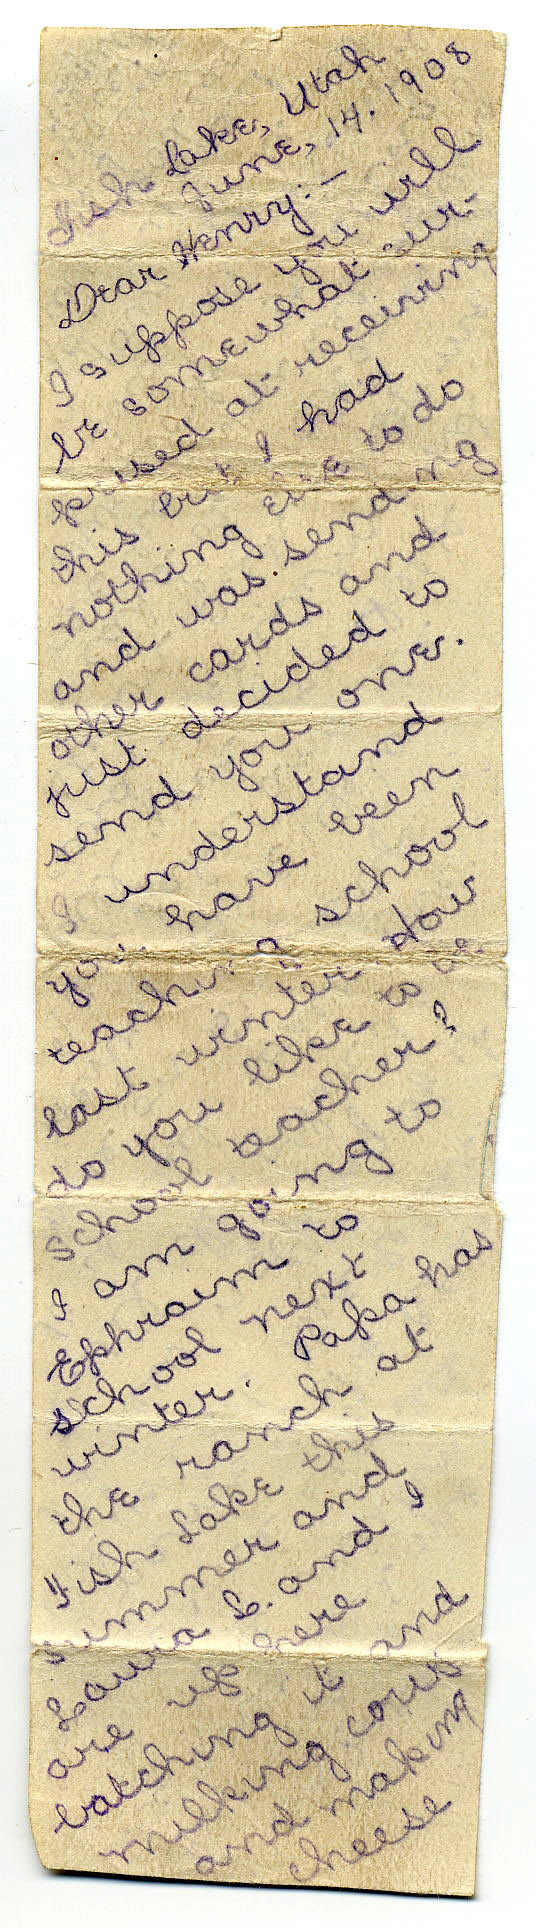 Fish Lake, Utah
June, 14. 1908
Dear Henry:—
I suppose you will
be somewhat sur-
prised at receiving
this but I had
nothing else to do
and was sending
other cards and
just decided to
send you one.
I understand
you have been
teaching school
last winter How
do you like to be
school teacher?
I am going to
Ephraim to
school next
winter. Papa has
the ranch at
Fish Lake this
summer and
Laura L. and I
are up here
batching it and
milking cows
and making
cheese